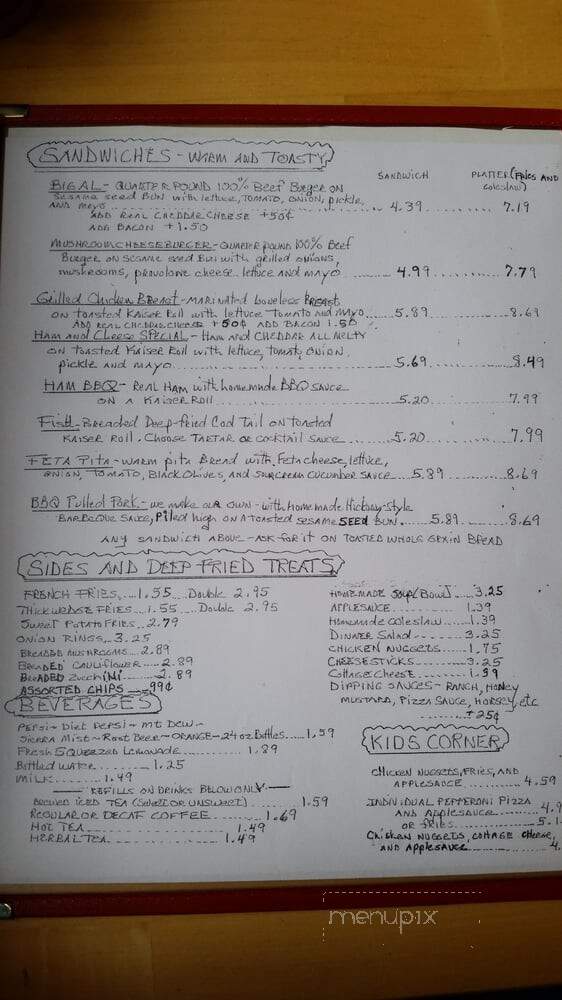 SANDWICHES - WARM AND TOASTY
SANDWICH PLATTER (FRIES AND coleslaw)
BIG AL - QUARTER POUND 100% Beef Burger on
sesame seed BUN with lettuce, TOMATO, ONION, pickle,
AND mayo 4.39 7.19
ADD REAL CHEDDAR CHEESE +50¢
ADD BACON +1.50
MUSHROOM CHEESEBURGER - QUARTER POUND 100% Beef
BURGER ON SESAME seed BUN with grilled onions,
mushrooms, provolone cheese, lettuce AND MAYO 4.99 7.79
Grilled Chicken Breast - MARINATED boneless BREAST
ON TOASTED KAISER Roll with lettuce Tomato and Mayo 5.89 8.69
ADD REAL CHEDDAR CHEESE +50¢ ADD BACON 1.50
HAM AND CHEESE SPECIAL - HAM AND CHEDDAR ALL MELTY
ON TOASTED KAISER Roll with lettuce, tomato, ONION,
pickle AND mayo 5.69 8.49
HAM BBQ - REAL HAM with homemade BBQ SAUCE
ON A KAISER ROLL 5.20 7.99
FISH - Breaded Deep-fried Cod Tail on toasted
KAISER ROLL. CHOOSE TARTAR OR COCKTAIL SAUCE 5.20 7.99
FETA PITA - WARM pita BREAD with Feta cheese, lettuce,
ONION, TOMATO, BLACK OLIVES, AND SOURCREAM CUCUMBER SAUCE 5.89 8.69
BBQ Pulled Pork - we make our own - with homemade Hickory-style
BARBEQUE SAUCE, Piled high ON A TOASTED sesame SEED BUN 5.89 8.69
ANY SANDWICH ABOVE - ASK FOR IT ON TOASTED WHOLE GRAIN BREAD
SIDES AND DEEP FRIED TREATS
FRENCH FRIES 1.55 Double 2.95
THICK WEDGE FRIES 1.55 Double 2.95
Sweet Potato FRIES 2.79
ONION RINGS 3.25
BREADED MUSHROOMS 2.89
BREADED CAULIFLOWER 2.89
BREADED ZUCCHINI 2.89
ASSORTED CHIPS 99¢
HOMEMADE SOUP (Bowl) 3.25
APPLESAUCE 1.39
Homemade coleslaw 1.39
DINNER Salad 3.25
CHICKEN NUGGETS 1.75
CHEESESTICKS 3.25
Cottage Cheese 1.59
DIPPING SAUCES - RANCH, HONEY
MUSTARD, PIZZA SAUCE, HORSEY, etc
+25¢
BEVERAGES
PEPSI - Diet PEPSI - MT DEW -
SIERRA MIST - ROOT BEER - ORANGE - 24 oz Bottles 1.59
Fresh SQUEEZED Lemonade 1.89
Bottled water 1.25
MILK 1.49
REFILLS ON DRINKS BELOW ONLY
BREWED ICED TEA (SWEET OR UNSWEET) 1.59
REGULAR OR DECAF COFFEE 1.69
HOT TEA 1.49
HERBAL TEA 1.49
KIDS CORNER
CHICKEN NUGGETS, FRIES, AND
APPLESAUCE 4.59
INDIVIDUAL PEPPERONI PIZZA
AND APPLESAUCE 4.9
OR FRIES 5.1
Chicken NUGGETS, COTTAGE CHEESE,
AND APPLESAUCE 4.
menupix